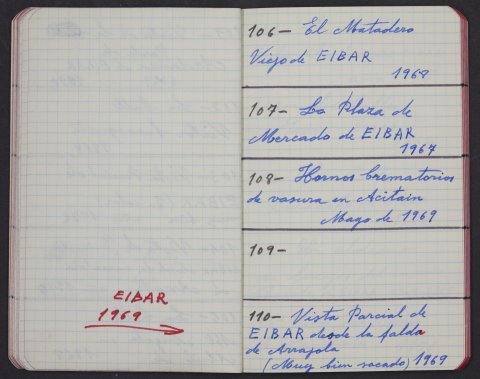 EIBAR
1969
106- El Matadero
Viejo de EIBAR
1968
107- La Plaza de
Mercado de EIBAR
1967
108- Hornos Crematorios
de vasura en Acitain
Mayo de 1969
109-
110- Vista Parcial de
EIBAR desde la falda
de Arrajola
(Muy bien sacado) 1969